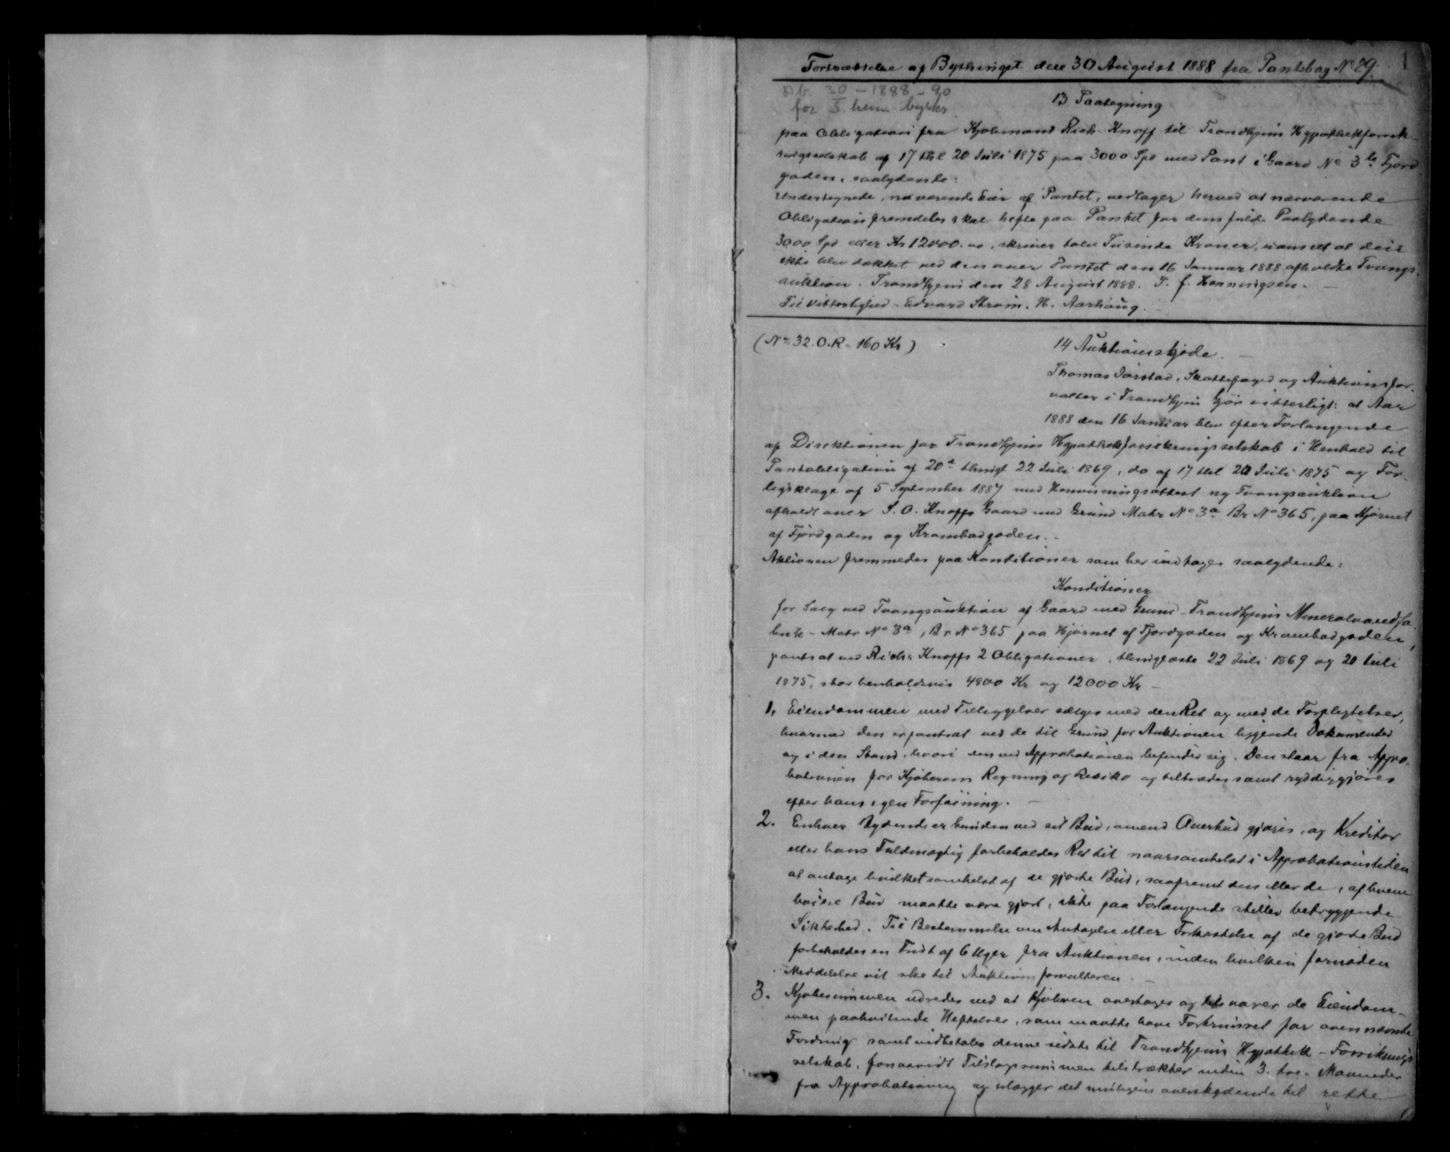 Fortsættelse af Bythinget den 30 August 1888 fra Pantebog No 29.
Pb. 30 - 1888 - 90
for T.heim byskr.
13 Paategning
paa Obligation fra Kjøbmand Rich. Knoff til Trondhjems Hypothekforsik-
ringsselskab af 17 thl 20 Juli 1875 paa 3000 Spd med Pant i Gaard No 3 Fjord
gaden, saalydende:
Undertegnede, nuværende Eier af Pantet, vedtager herved at nærværende
Obligation fremdeles skal hefte paa Pantet for dens fulde Paalydende
3000 Spd eller Kr 12000.00, skriver tolv Tusinde Kroner, uanseet at den
ikke blev dækket ved den over Pantet den 16 Januar 1888 afholdte Tvangs-
auktion. Trondhjem den 28 August 1888. Henningsen.
Til Vitterlighed - Edvard Strøm. H. Aarhaug.
(No 32. O.R - 160 Kr)
14 Auktionsskjøde.
Thomas Jarstad, Skattefoged og Auktionsfor-
valter i Trondhjem Gjør vitterligt: at Aar
1888 den 16 Januar blev efter Forlangende
af Direktionen for Trondhjems Hypothekforsikringsselskab i Henhold til
Pantobligation af 20de thinglt 22 Juli 1869, do af 17 thl 20 Juli 1875 og For-
ligsklage af 5 September 1887 med Henvisningsattest ny Tvangsauktion
afholdt over Knoffs Gaard med Grund Matr No 3a Br No 365, paa Hjørnet
af Fjordgaden og Krambodgaden.
Auktionen fremmedes paa Konditioner som her indtages saalydende:
Konditioner
for Salg ved Tvangsauktion af Gaard med Grund - Trondhjems Mineralvandfa-
brik - Matr No 3a, Br No 365 paa Hjørnet af Fjordgaden og Krambodgaden,
pantsat ved Rich. Knoffs 2 Obligationer, thinglæste 22 Juli 1869 og 20 Juli
1875, stor henholdsvis 4800 Kr og 12000 Kr -
1, Eiendommen med Tilliggelser sælges med den Ret og med de Forpligtelser,
hvormed den er pantsat ved de til Grund for Auktionen liggende Dokumenter
og i den Stand, hvori den ved Approbationen befinder sig. Den staar fra Appro-
bationen for Kjøberens Regning og Risiko og tiltrædes samt ryddiggjøres
efter hans egen Forføining.
2. Enhver Bydende er bunden ved sit Bud, omend Overbud gjøres, og Kreditor
eller hans Fuldmægtig forbeholdes Ret til naarsomhelst i Approbationstiden
at antage hvilketsomhelst af de gjorte Bud, saafremt den eller de, af hvem
høiere Bud maatte være gjort, ikke paa Forlangende stiller betryggende
Sikkerhed. Til Bestemmelse om Antagelse eller Forkastelse af de gjorte Bud
forbeholdes en Frist af 6 Uger fra Auktionen, inden hvilken fornøden
Meddelelse vil ske til Auktionsforvalteren.
3. Kjøbesummen udredes ved at Kjøberen overtager og tilsvarer de Eiendom-
men paahvilende Heftelser, som maatte have Fortrinsret for ovennævnte
Fordring samt indbetales denne sidste til Trondhjems Hypothek-Forsikrings-
selskab, forsaavidt Tilslagssummen tilstrækker inden 3- tre- Maaneder
fra Approbationen og erlægger det muligens overskydende til rette